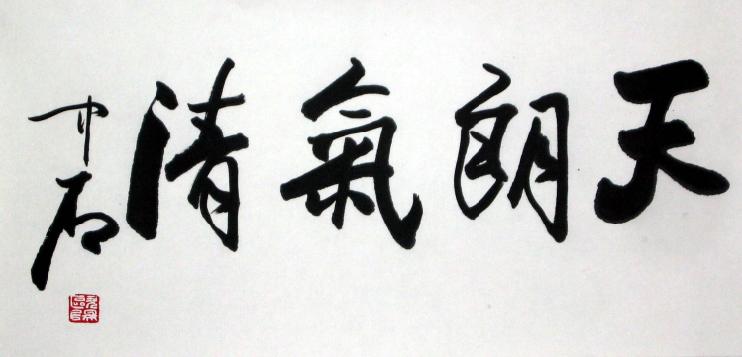 天朗氣清
中石